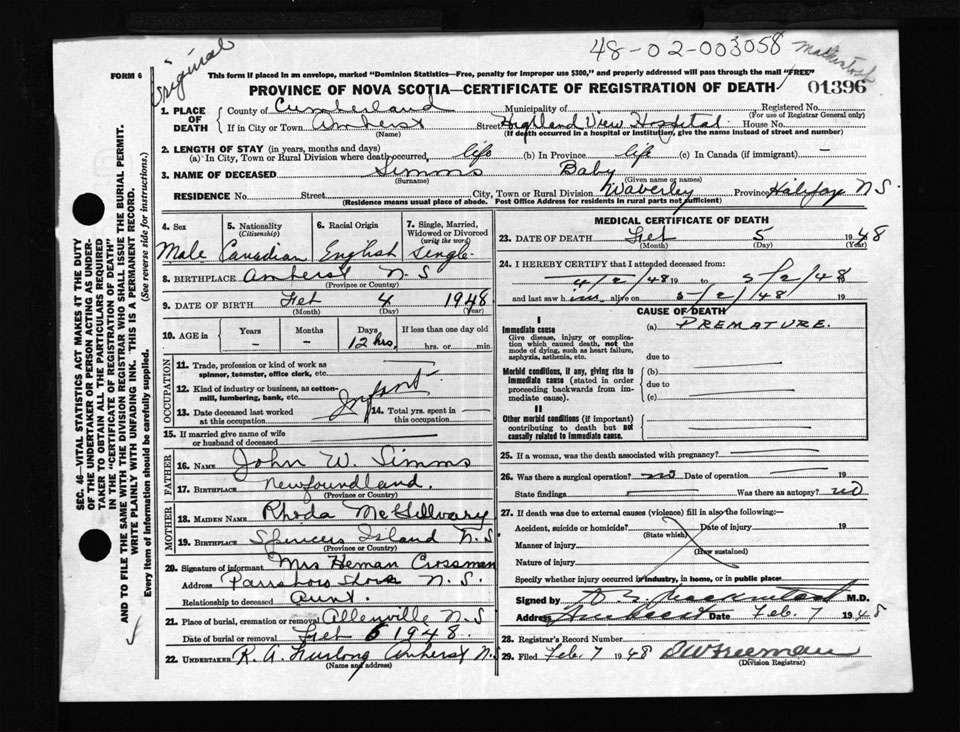 48-02-003058
Mackintosh
Original
FORM 6
This form if placed in an envelope, marked "Dominion Statistics—Free, penalty for improper use $300," and properly addressed will pass through the mail "FREE"
PROVINCE OF NOVA SCOTIA—CERTIFICATE OF REGISTRATION OF DEATH
01396
1. PLACE OF DEATH County of Cumberland Municipality of Registered No.
(For use of Registrar General only)
If in City or Town Amherst Street Highland View Hospital House No.
(Name) (If death occurred in a hospital or institution, give the name instead of street and number)
2. LENGTH OF STAY (in years, months and days)
(a) In City, Town or Rural Division where death occurred, life (b) In Province life (c) In Canada (if immigrant) —
3. NAME OF DECEASED Simms Baby
(Surname) (Given name or names)
RESIDENCE No. Street City, Town or Rural Division Waverley Province Halifax N.S.
(Residence means usual place of abode. Post Office Address for residents in rural parts not sufficient)
4. Sex 5. Nationality (Citizenship) 6. Racial Origin 7. Single, Married, Widowed or Divorced (write the word)
Male Canadian English Single
8. BIRTHPLACE Amherst N.S.
(Province or Country)
9. DATE OF BIRTH Feb 4 1948
(Month) (Day) (Year)
10. AGE in Years Months Days If less than one day old
— — 12 hrs. hrs. or min.
OCCUPATION
11. Trade, profession or kind of work as spinner, teamster, office clerk, etc.
12. Kind of industry or business, as cotton-mill, lumbering, bank, etc. Infant
13. Date deceased last worked at this occupation 14. Total yrs. spent in this occupation
15. If married give name of wife or husband of deceased
FATHER
16. NAME John W. Simms
17. BIRTHPLACE Newfoundland.
(Province or Country)
MOTHER
18. MAIDEN NAME Rheda McGillvary
19. BIRTHPLACE Spencers Island N.S
(Province or Country)
20. Signature of informant Mrs Heman Crossman
Address Parrsboro Shore N.S.
Relationship to deceased Aunt.
21. Place of burial, cremation or removal Allenville N.S
Date of burial or removal Feb 6 1948.
22. UNDERTAKER R. A. Furlong Amherst N.S
(Name and address)
MEDICAL CERTIFICATE OF DEATH
23. DATE OF DEATH Feb 5 1948
(Month) (Day) (Year)
24. I HEREBY CERTIFY that I attended deceased from
4/2/48 19 to 5/2/48 19
and last saw him alive on 5/2/48 19
CAUSE OF DEATH
I
Immediate cause (a) PREMATURE.
Give disease, injury or complication which caused death, not the mode of dying, such as heart failure, asphyxia, asthenia, etc.
due to
Morbid conditions, if any, giving rise to immediate cause (stated in order proceeding backwards from immediate cause).
(b)
due to
(c)
II
Other morbid conditions (if important) contributing to death but not causally related to immediate cause.
25. If a woman, was the death associated with pregnancy?
26. Was there a surgical operation? no Date of operation 19
State findings Was there an autopsy? no
27. If death was due to external causes (violence) fill in also the following:—
Accident, suicide or homicide? Date of injury 19
(State which)
Manner of injury
(How sustained)
Nature of injury
Specify whether injury occurred in industry, in home, or in public place
Signed by M.D.
Address Amherst Date Feb. 7 1948
28. Registrar's Record Number
29. Filed Feb. 7 1948 DWFreeman
(Division Registrar)
SEC. 46—VITAL STATISTICS ACT MAKES IT THE DUTY
OF THE UNDERTAKER OR PERSON ACTING AS UNDER-
TAKER TO OBTAIN ALL THE PARTICULARS REQUIRED
IN THE "CERTIFICATE OF REGISTRATION OF DEATH"
AND TO FILE THE SAME WITH THE DIVISION REGISTRAR WHO SHALL ISSUE THE BURIAL PERMIT.
WRITE PLAINLY WITH UNFADING INK. THIS IS A PERMANENT RECORD.
Every item of information should be carefully supplied. (See reverse side for instructions.)